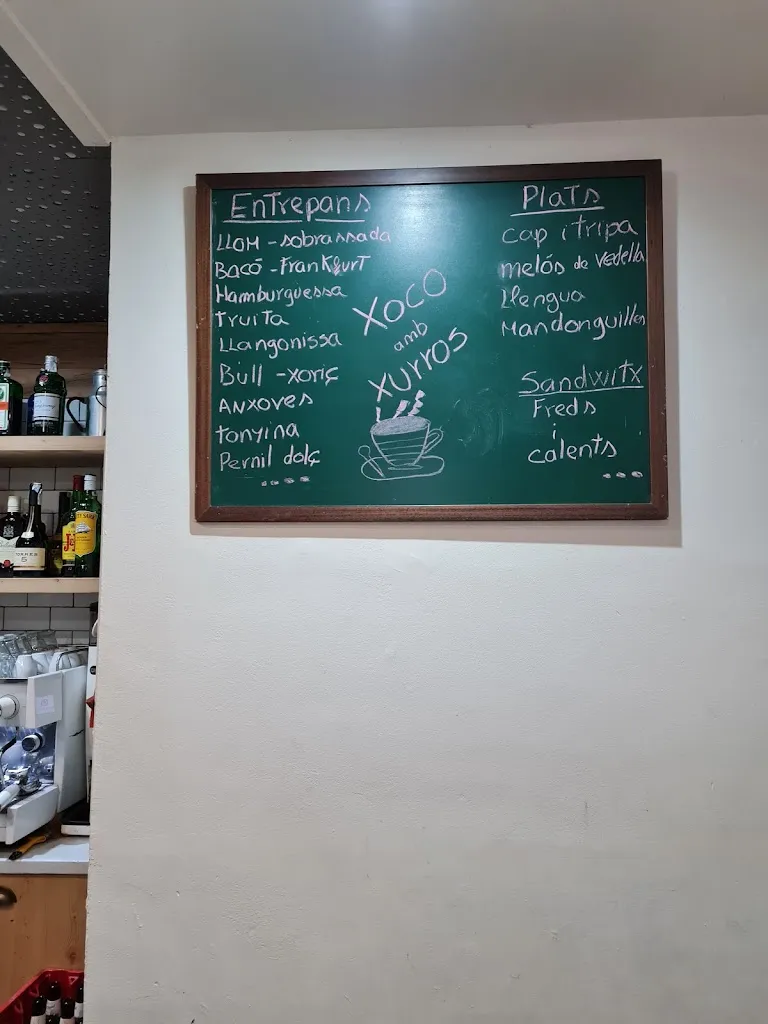 Entrepans
LLOM - sobrassada
Bacó - Frankfurt
Hamburguessa
Truita
LLangonissa
Bull - xoriç
Anxoves
tonyina
Pernil dolç
....
Xoco
amb
xurros
Plats
cap i tripa
melós de vedella
Llengua
Mandonguilles
Sandwitx
Freds
i
calents
...
J&B
TORRES
5